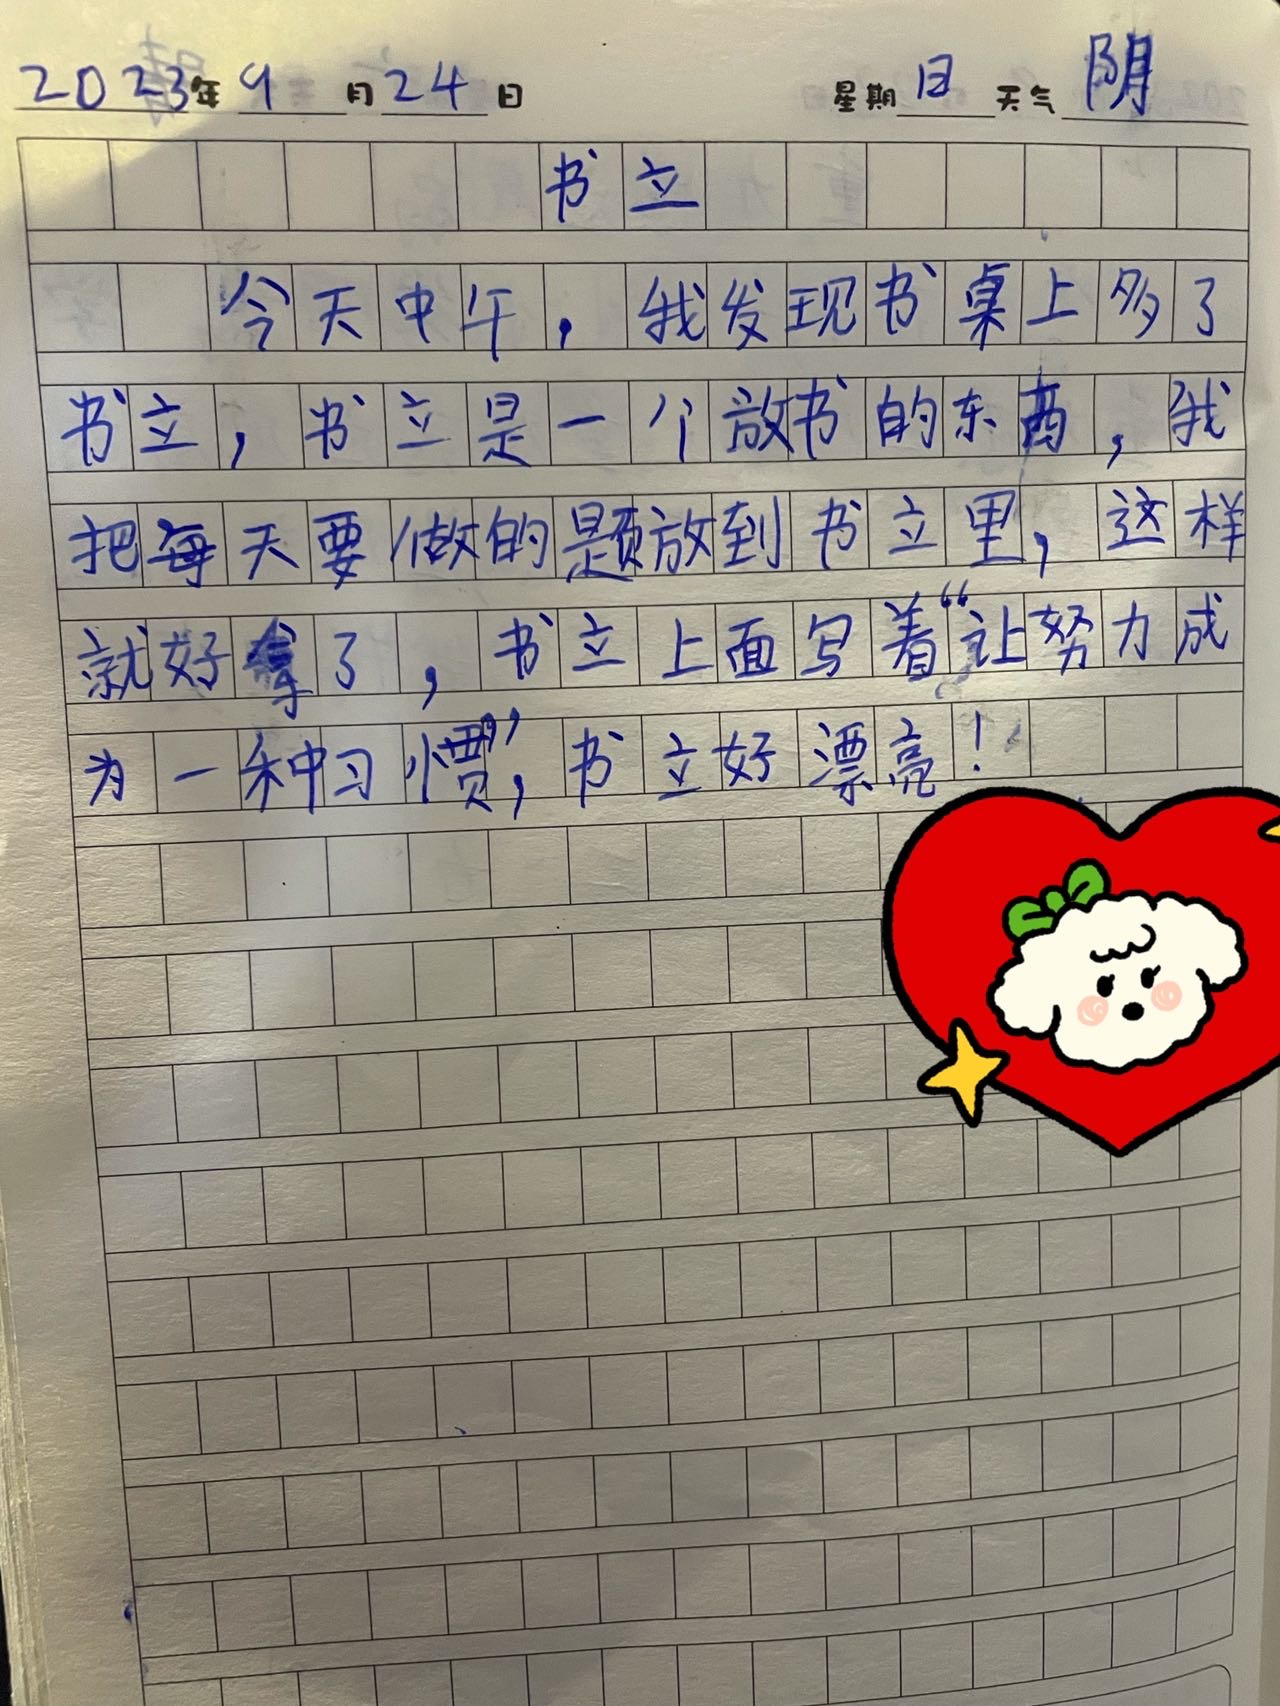 2023年9月24日 星期日 天气阴
书立
今天中午，我发现书桌上多了
书立，书立是一个放书的东西，我
把每天要做的题放到书立里，这样
就好拿了，书立上面写着“让努力成
为一种习惯”，书立好漂亮！